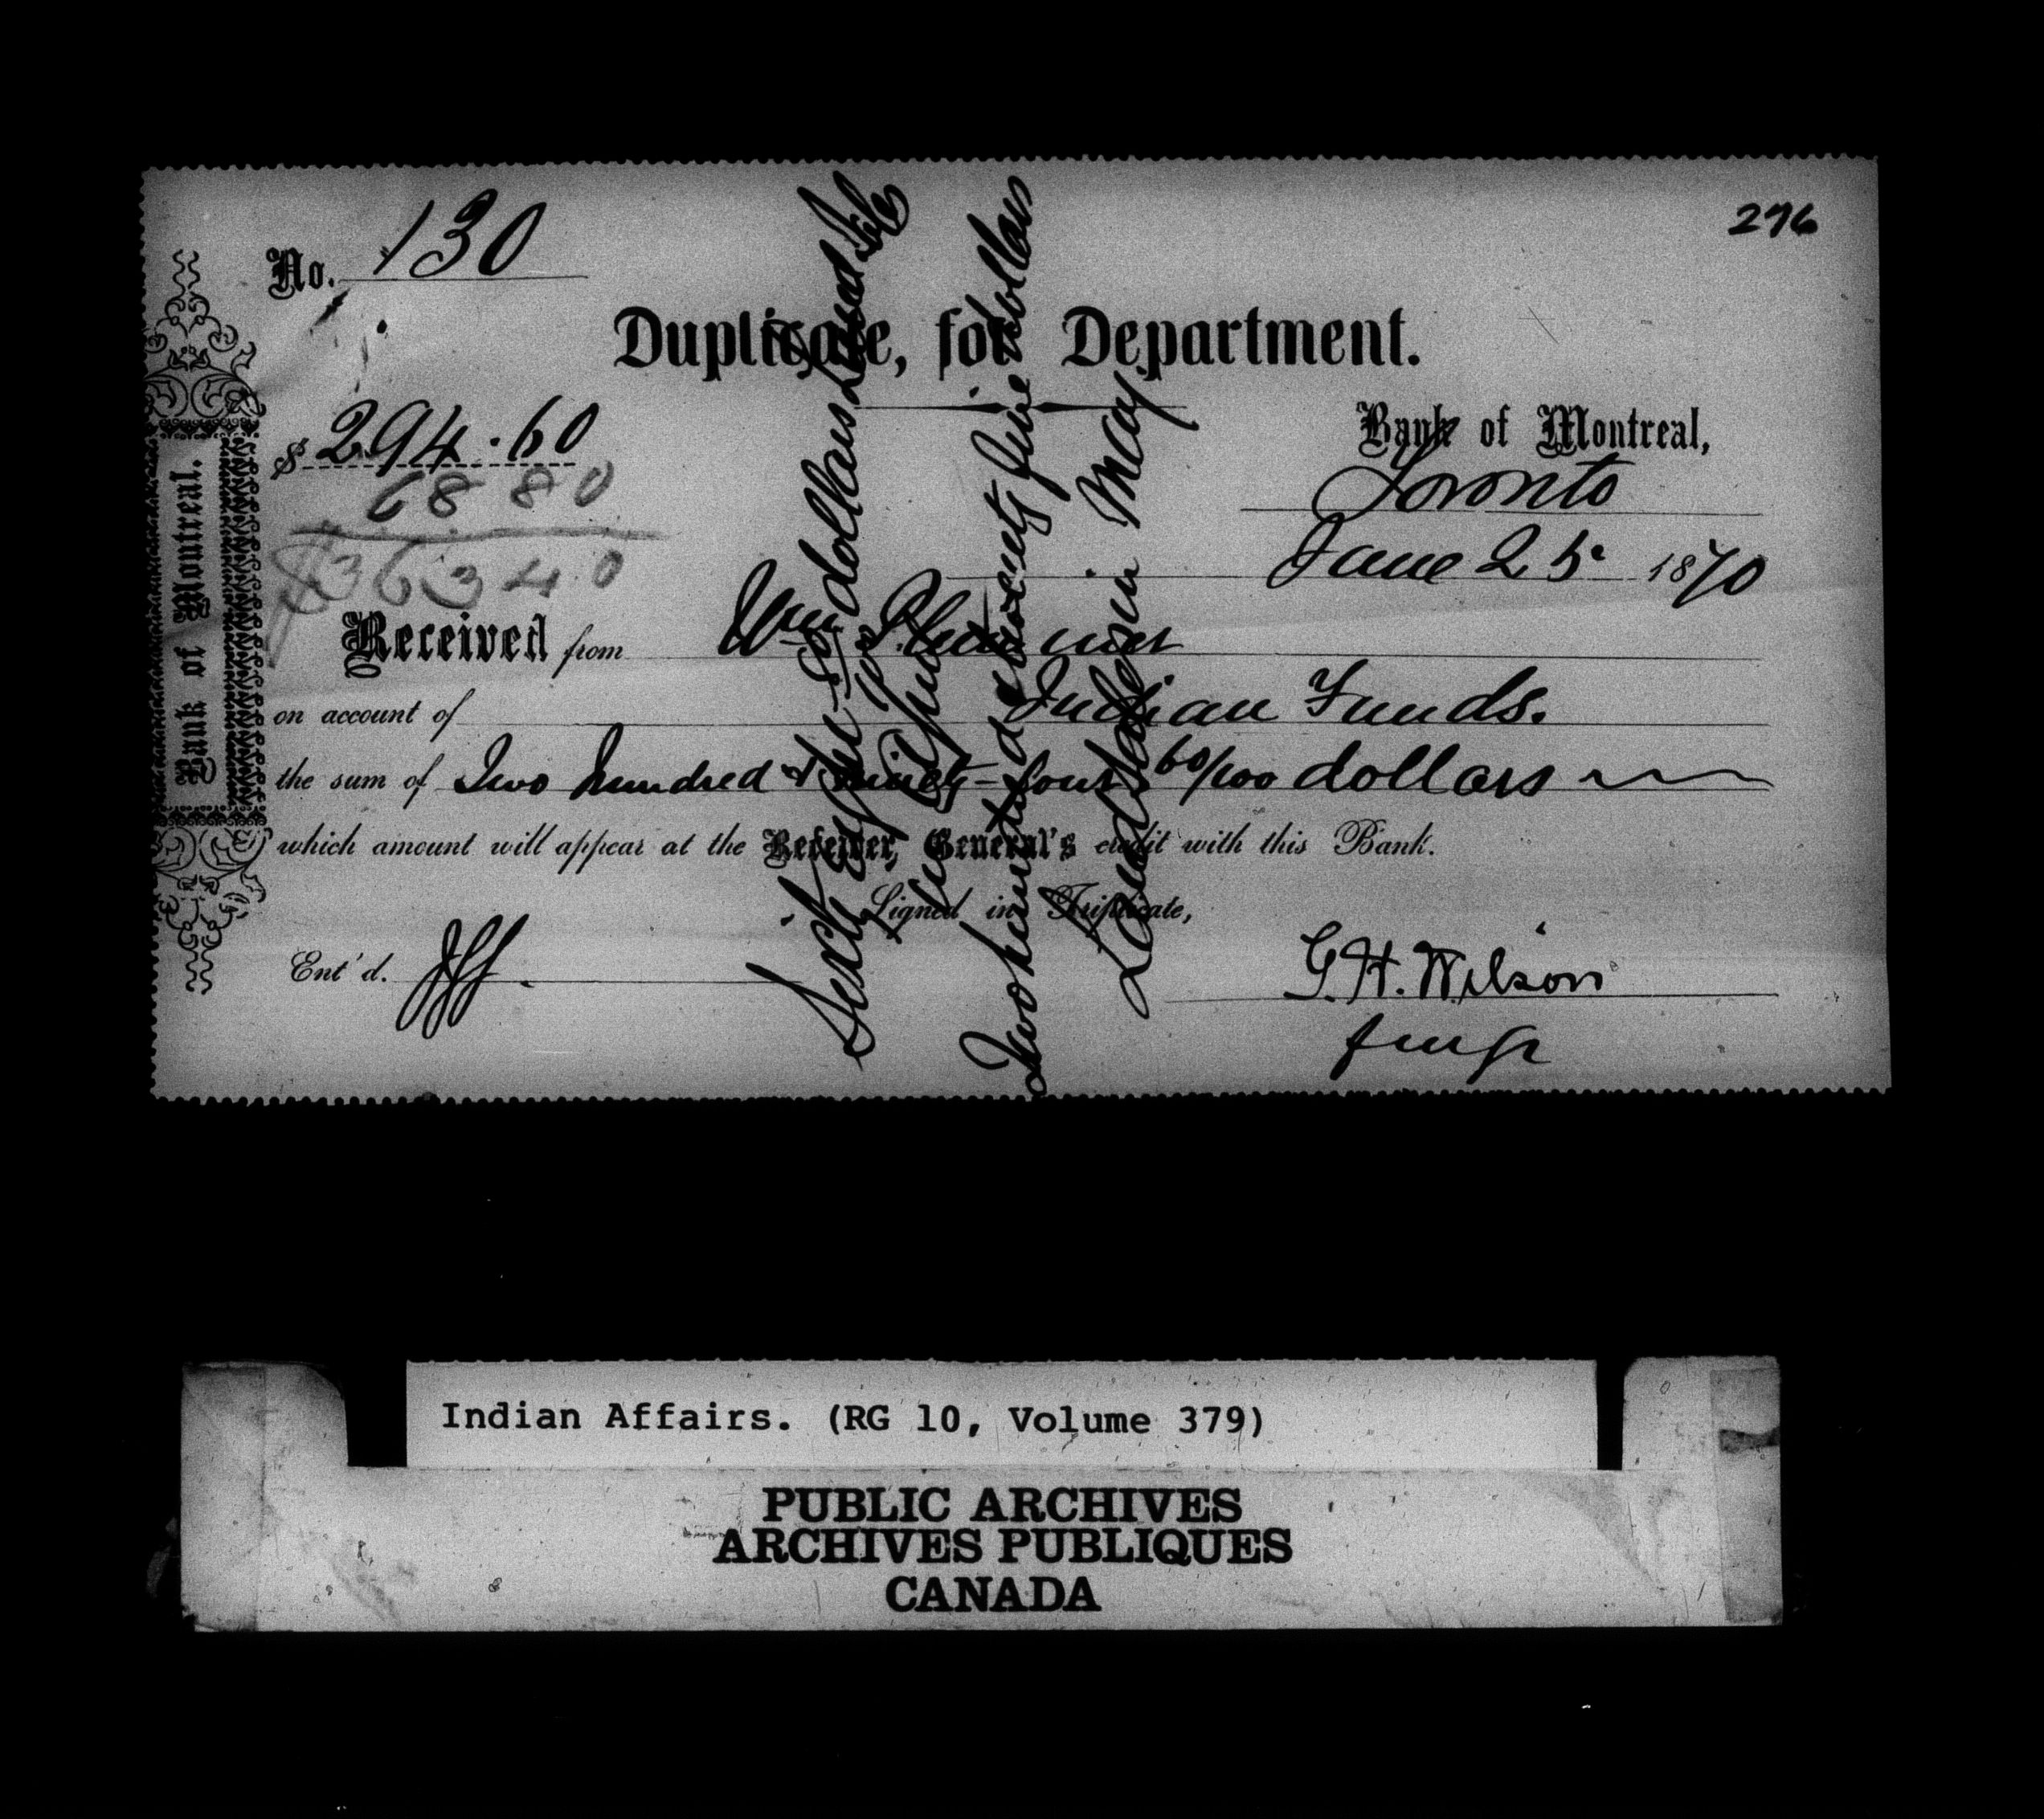 296
No. 130
Duplicate, for Department.
Bank of Montreal.
$ 294.60
68 80
$363 40
Bank of Montreal,
Toronto
June 25. 1870
Received from Wm Plummer
on account of Indian Funds.
the sum of Two hundred & ninety-four 60/100 dollars
which amount will appear at the Receiver General's credit with this Bank.
Signed in Triplicate,
Ent'd.
G. H. Wilson
Sixty Eight 80 dollars Land Sales
in April
Two hundred & ninety four dollars
Land Sales in May
Indian Affairs. (RG 10, Volume 379)
PUBLIC ARCHIVES
ARCHIVES PUBLIQUES
CANADA